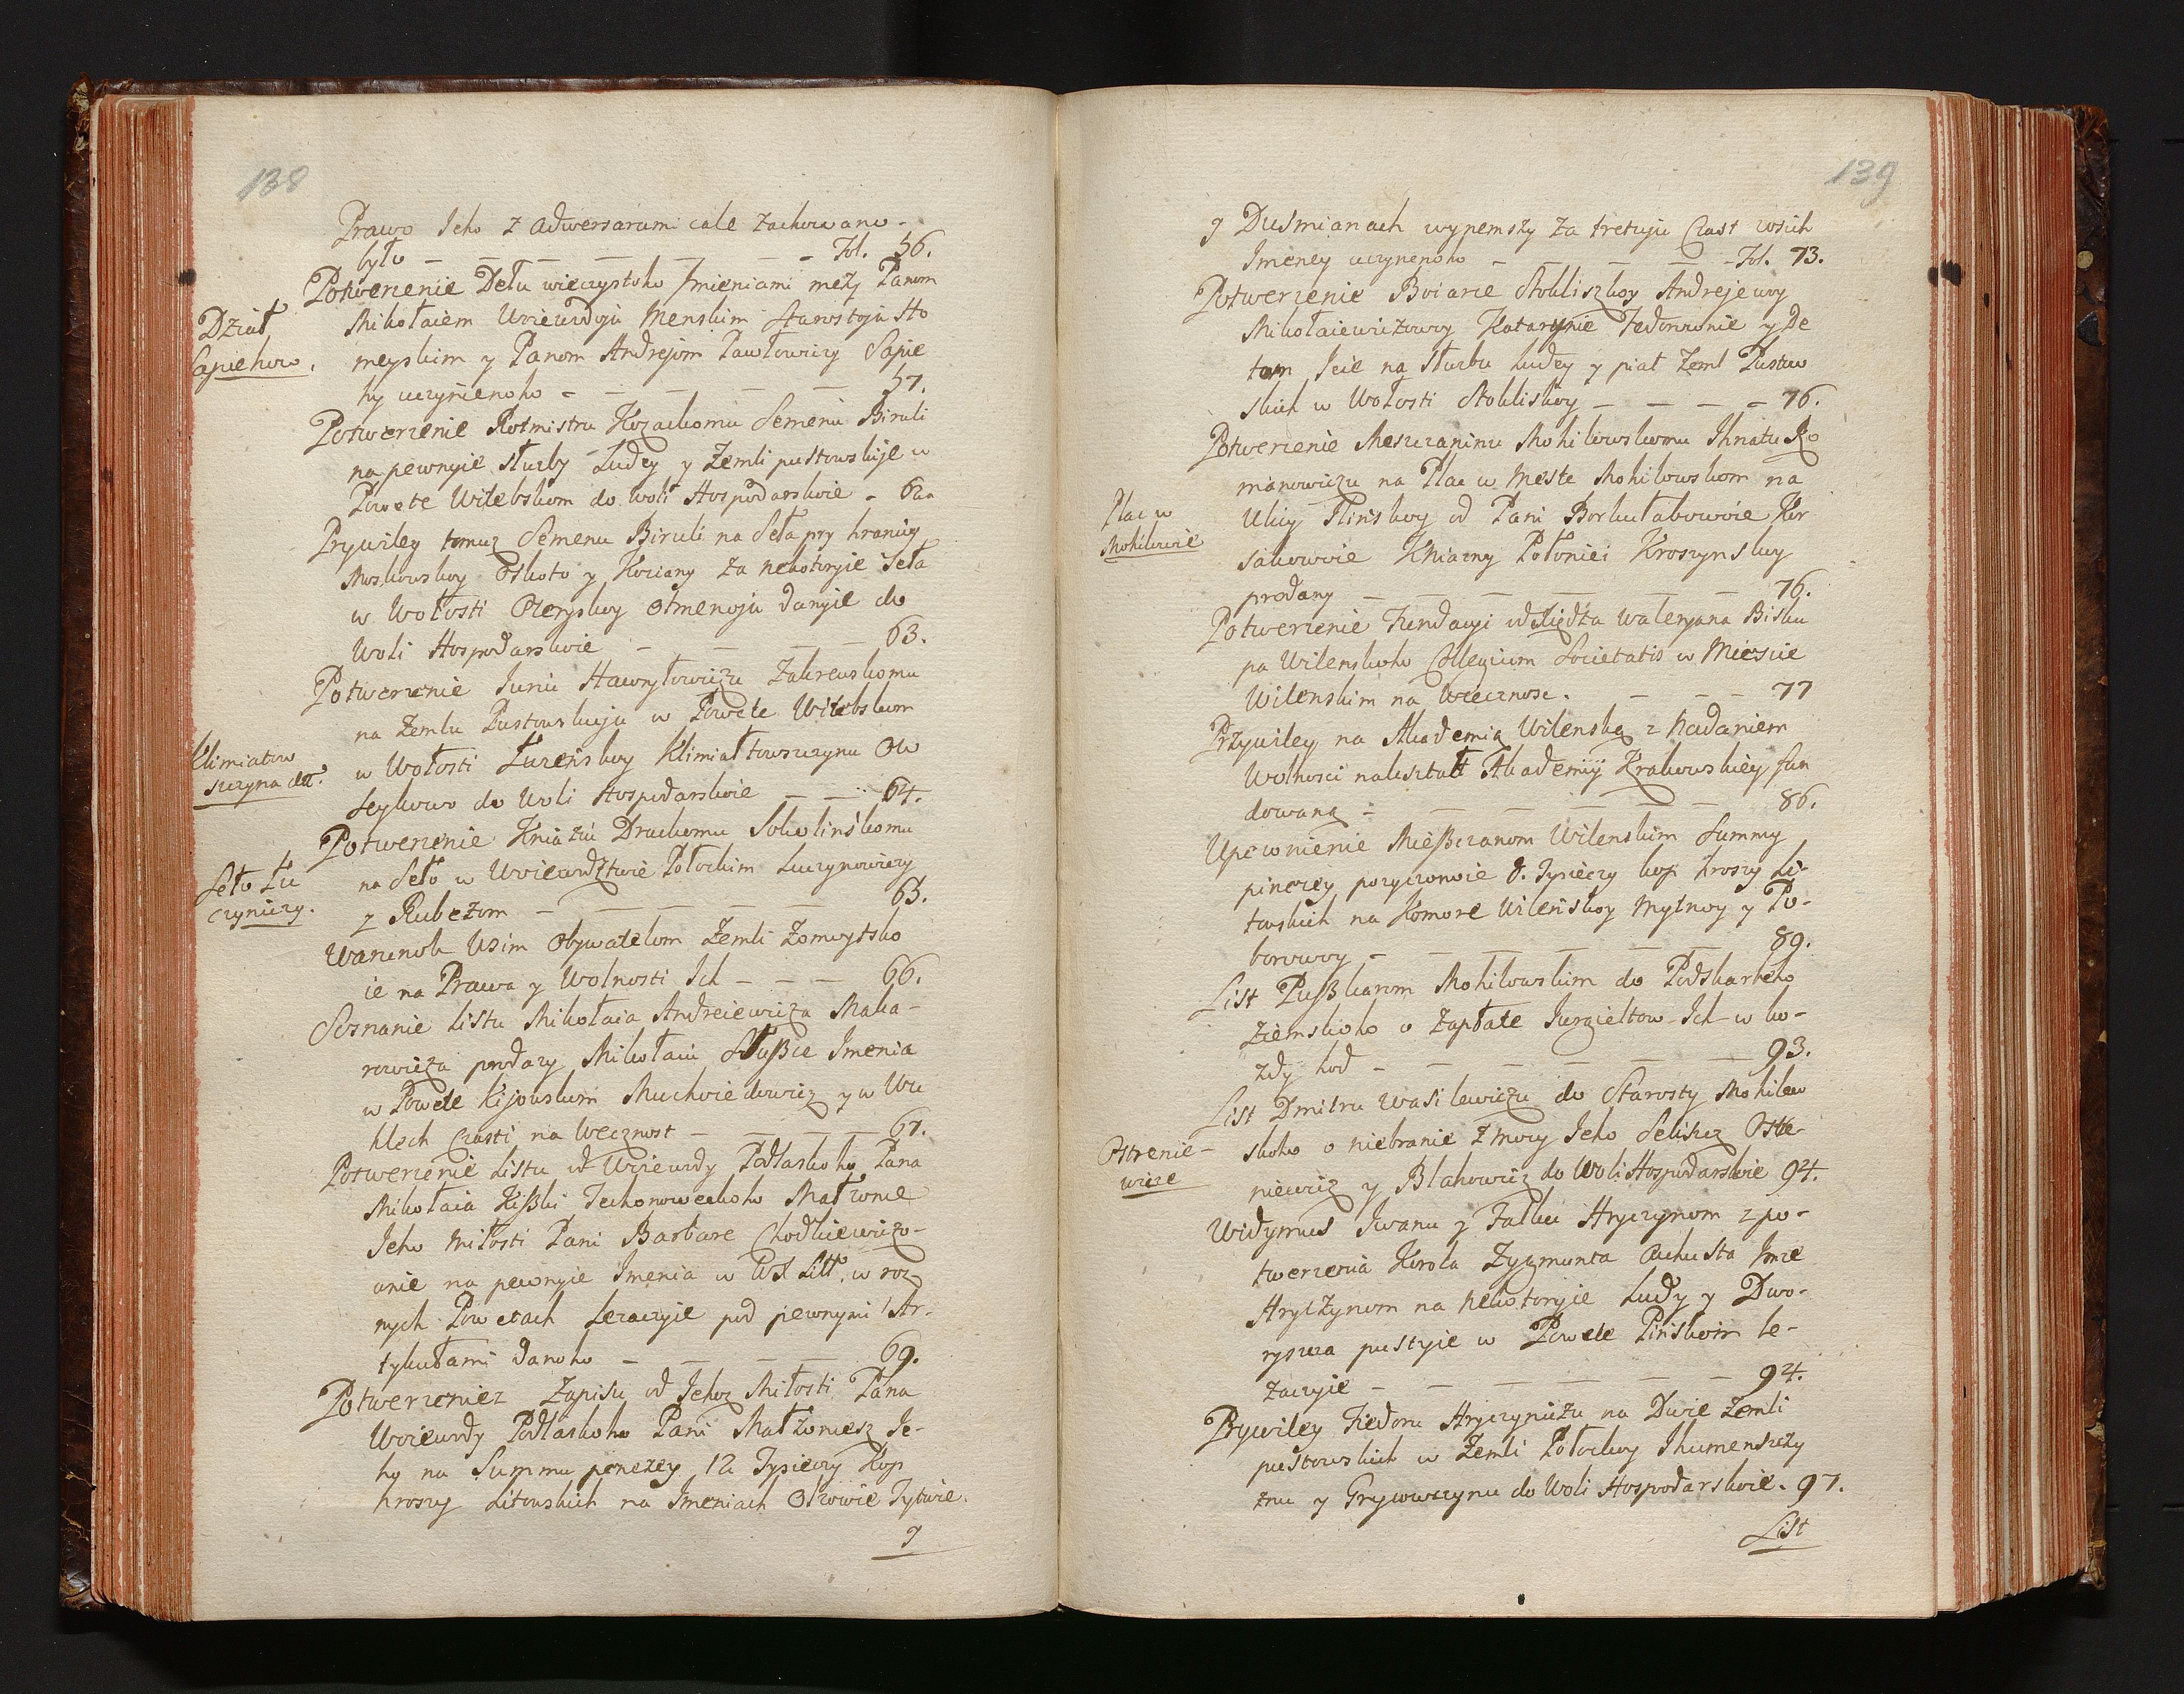 138
Prawo Jeho z adwersarami cale zachowano
było - - - - - - - Fol. 56.
Potwerzenie Dełu wieczystoho Imieniami meży Panom
Dział
Sapiehow.
Mikołaiem Woiewodoju Menskim Starostoju Ho
meyskim y Panom Andrejom Pawłowiczy Sapie
hy uczynienoho - - - - - 57.
Potwerzenie Rotmistru Kozackomu Semenu Biruli
na pewnyie słuzby Ludey y Zemli pustowskije w
Powete Witebskom do woli Hospodarskoie - 62.
Prywiley tomuz Semenu Biruli na Seła pry hranicy
Moskowskoy Oskoto y Koziany za nekotoryie Seła
w Wołosti Ozeryskoy Otmenoju danyie do
Woli Hospodarskoie - - - - 63.
Potwerzenie Juriu Hawryłowiczu Zakrewskomu
na Zemlu Pustowskuju w Powete Witebskom
Klimiatow
szczyna etc.
w Wołosti Łużeńskoy Klimiałtowszczynu
Leykowo do Woli Hospodarskoie - - 64.
Potwerzenie Kniaziu Druckomu Sokolińskomu
Seło Łu
czyniczy.
na Seło w Woiewodztwie Połockim Łuczynowiczy
z Rubeżom - - - - - 65.
Warunok Wsim Obywatelom Zemli Żomoytsko
ie na Prawa y Wolnosti Ich - - - 66.
Soznanie Listu Mikołaia Andreiewicza Maka-
rowicza prodazy Mikołaiu Słußce Imenia
w Powete Kijowskom Muchoiedowicz y w Wu
hlech Czasti na Wecznost - - - - 67.
Potwerzenie Listu od Woiewody Podlaskoho Pana
Mikołaia Kißki Techonoweckoho Małżonce
Jeho Miłosti Pani Barbare Chodkiewiczo-
wnie na pewnyie Imenia w WX Litt. w roz
nych Powetach Lezaczyie pod pewnymi Ar-
tykułami danoho - - - - 69.
Potwerzeniez Zapisu od Jehoz Miłosti Pana
Woiewody Podlaskoho Pani Małżonce Je-
ho na Summu penezey 12 Tysieczy Kop
hroszy Litowskich na Imeniach Olwowie Tytwie.
y
139
y Dusmianach wypemszy za tretuju Czast wsich
Imeney uczynenoho - - - - - Fol. 73.
Potwerzenie Boiarce Stokliszkoy Andrejewoy
Mikołaiewiczowoy Katarynie Fedorownie y De
tom Jeie na słuzbu ludey y piat Zeml Pustow
skich w Wołosti Stokliskoy - - - - 76.
Potwerzenie Meszczaninu Mohilowskomu Ihnatu Ro
manowiczu na Plac w Meste Mohilowskom na
Plac w
Mohilowie
Ulicy Ilińskoy od Pani Borkułabowoie Kor
sakowoie Kniazny Połoniei Kroszynskoy
prodany - - - - - - - 76.
Potwerzenie Fundacyi od Xiędza Waleryana Bisku
pa Wilenskoho Collegium Societatis w Miescie
Wilenskim na Wiecznosc. - - - 77
Przywiley na Akademią Wilenską z Nadaniem
Wolnosci nakształt Akademiy Krakowskiey fun
dowaną - - - - - - 86.
Upewnienie Mießczanom Wilenskim Summy
pinezey pozyczonoie 8. Tysieczy kop hroszy Li-
towskich na Komore Wileńskoy Mytnoy y Po-
borowoy - - - - - - 89.
List Pußkarom Mohilowskim do Podskarbeho
Ziemskoho o Zapłate Jurgieltow Ich w ko-
zdy hod - - - - - - 93.
List Dmitru Wasilewiczu do Starosty Mohilew
Ostrenie-
wicze
skoho o niebranie z mocy Jeho Seliszcz Ostre-
niewicz y Blahowicz do Woli Hospodarskoie 94.
Widymus Iwanu y Falku Hryczynom z po-
twerzenia Korola Zygmunta Auhusta Imze
Hryczynom na nekotoryie Ludy y Dwo-
ryszcza pustyie w Powete Pińskom le-
żaczyie - - - - - - 94.
Prywiley Fiedoru Hryczyniczu na Dwie Zemli
pustowskich w Zemli Połockoy Ihumenszczy
znu y Grycowszczynu do Woli Hospodarskoie. 97.
List